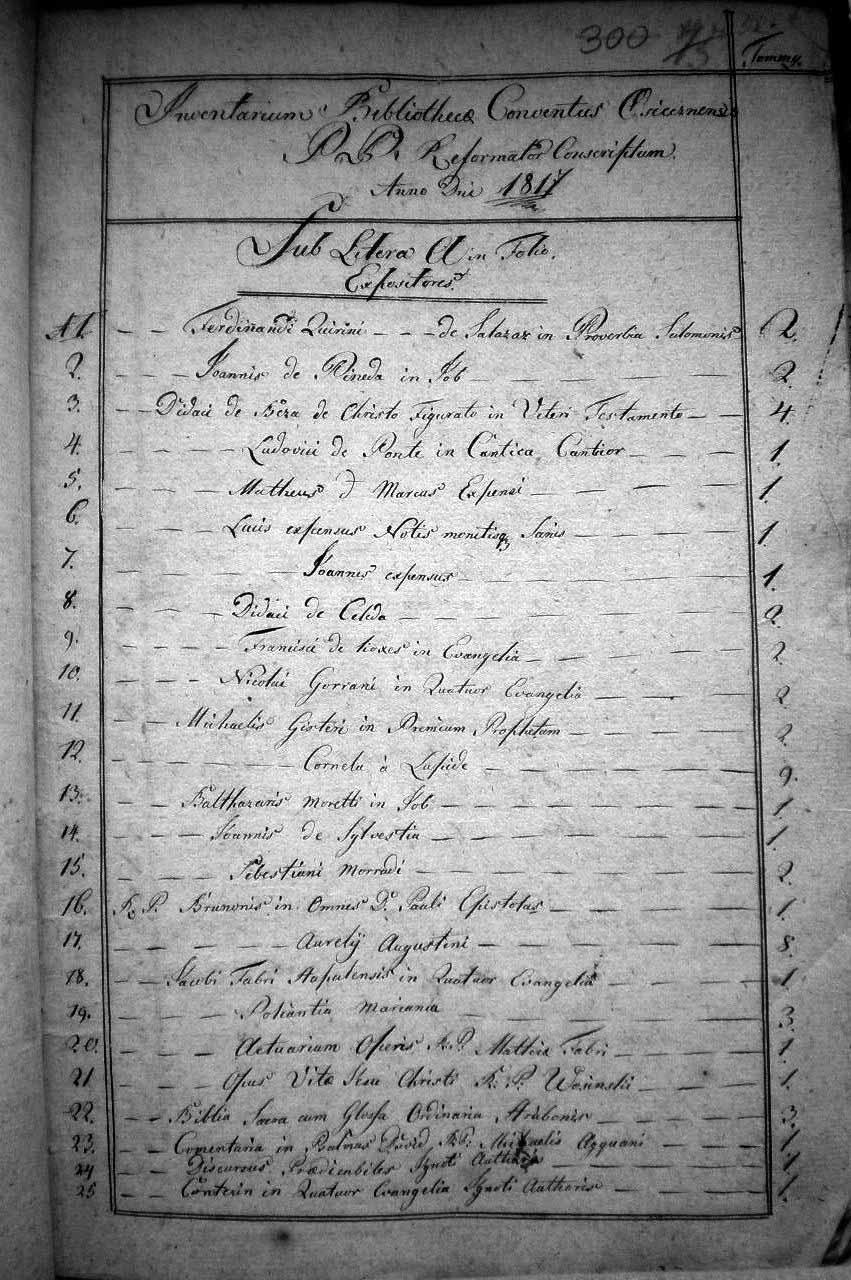 300 75
Tommy.
Inventarium Bibliothecæ Conventus Osiecznensis
P. P. Reformator Conscriptum.
Anno Dni 1817
Sub Litera A in Folio.
Expositores.
№1. Ferdinandi Quirini de Salazar in Proverbia Salomonis 2.
2. Joannis de Pineda in Job 2.
3. Didaci de Bæza de Christo Figurato in Veteri Testamento 4.
4. Ludovici de Ponte in Cantica Canticor 1.
5. Matheus & Marcus Expensi 1.
6. Lucis expensus Notis monitisq Sanis 1.
7. Joannes expensus 1.
8. Didaci de Celeda 2.
9. Francisci de in Evangelia 2.
10. Nicolai Gorrani in Quatuor Evangelia 2
11. Michaelis Gisleri in Premium Prophetam 2.
12. Cornela à Lapide 9.
13. Balthazaris Moretti in Job 1.
14. Joannis de Sylvestia 1.
15. Sebestiani Morradi 2.
16. R. P. Brunonis in Omnes D. Pauli Epistolas 1.
17. Aurelij Augustini 8.
18. Jacobi Fabri Stapulensis in Quatuor Evangelia 1
19. Poliantia Mariania 3.
20. Actuarium Operis R. P. Mathiæ Fabri 1.
21 Opus Vitæ Jesu Christi R. P. Wosinskii 1.
22. Biblia Sacra cum Glossa Ordinaria Strabonis 3.
23. Comentaria in Psalmos David R. P. Michaelis Ayguani 1
24 Discursus Prædicabiles Ignoti Authoris 1.
25 in Quatuor Evangelia Ignoti Authoris 1.